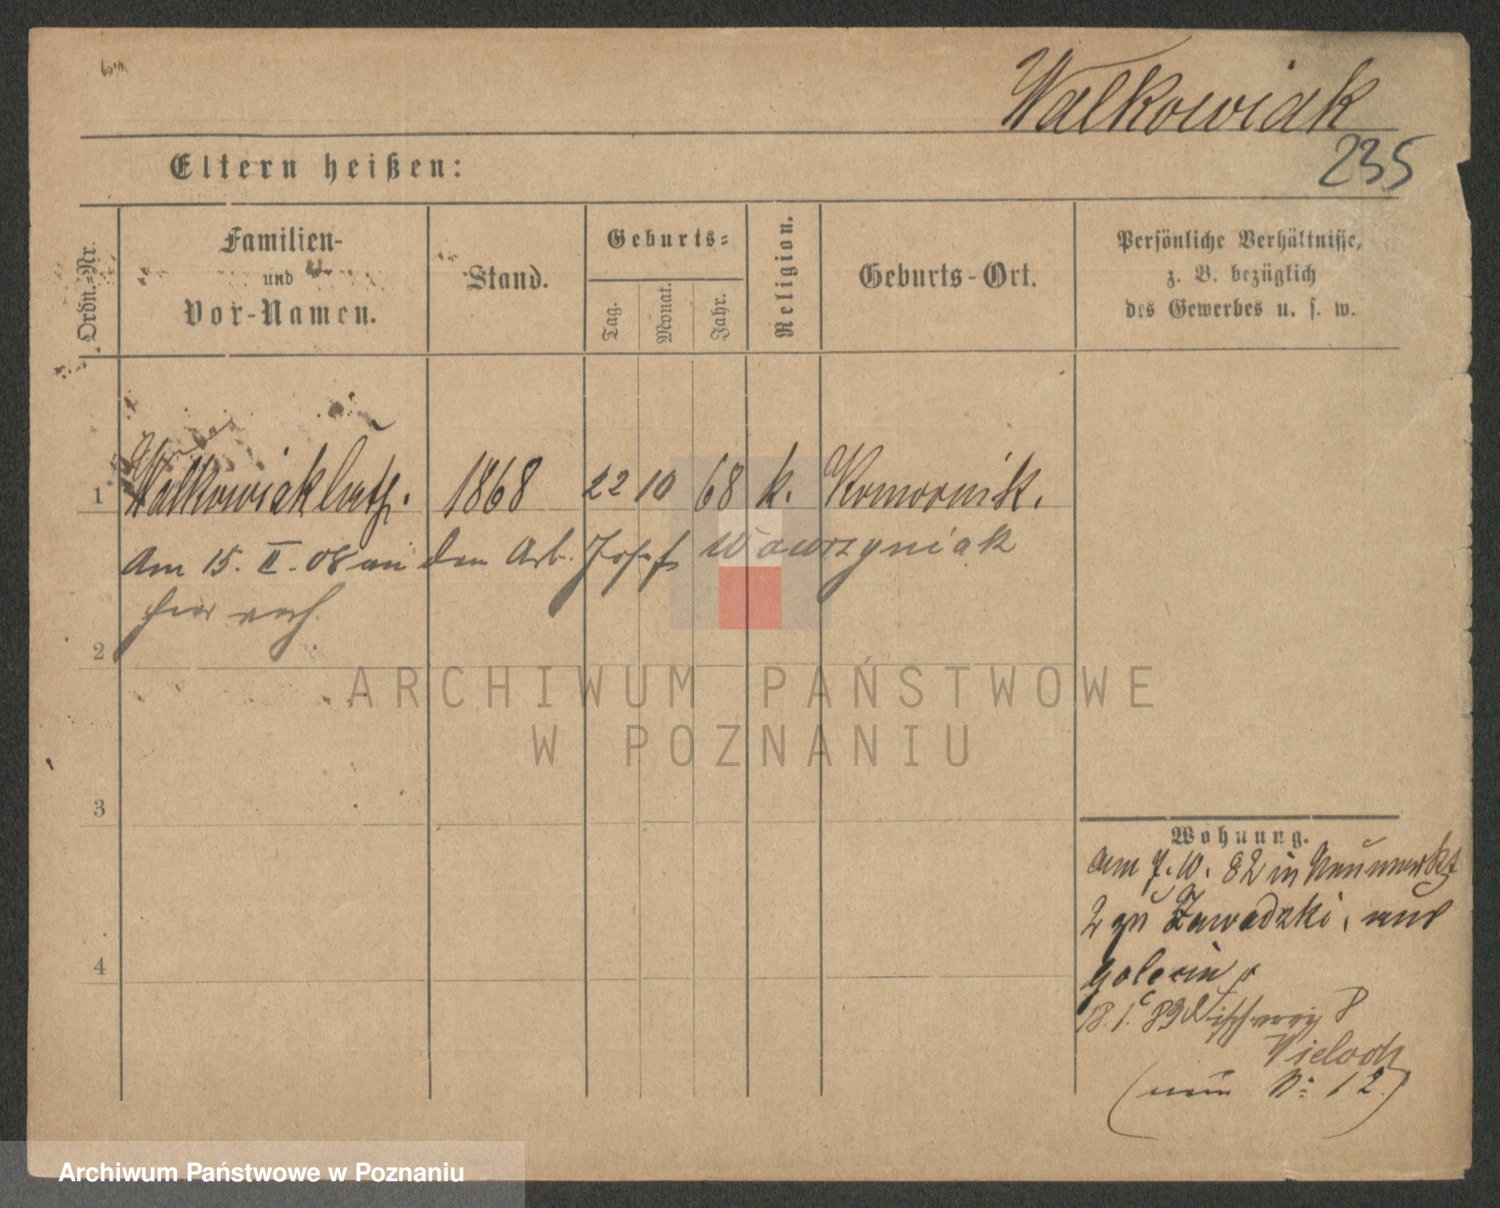 Walkowiak
235
Eltern heißen:
Ordn.-Nr.
Familien-
und
Vor-Namen.
Stand.
Geburts-
Tag.
Monat.
Jahr.
Religion.
Geburts-Ort.
Persönliche Verhältnisse,
z. B. bezüglich
des Gewerbes u. s. w.
1 Walkowiak Cath. 1868 22 10 68 k. Komornik.
Am 15. II. 08 an den Arb. Josef Wawrzyniak
hier verh.
2
3
4
Wohnung.
am 7.10.82 in Neumarkt
2 zu Zawadzki, aus
18.1.89 8
Wieloch
(neu N: 12)
ARCHIWUM PAŃSTWOWE
W POZNANIU
Archiwum Państwowe w Poznaniu